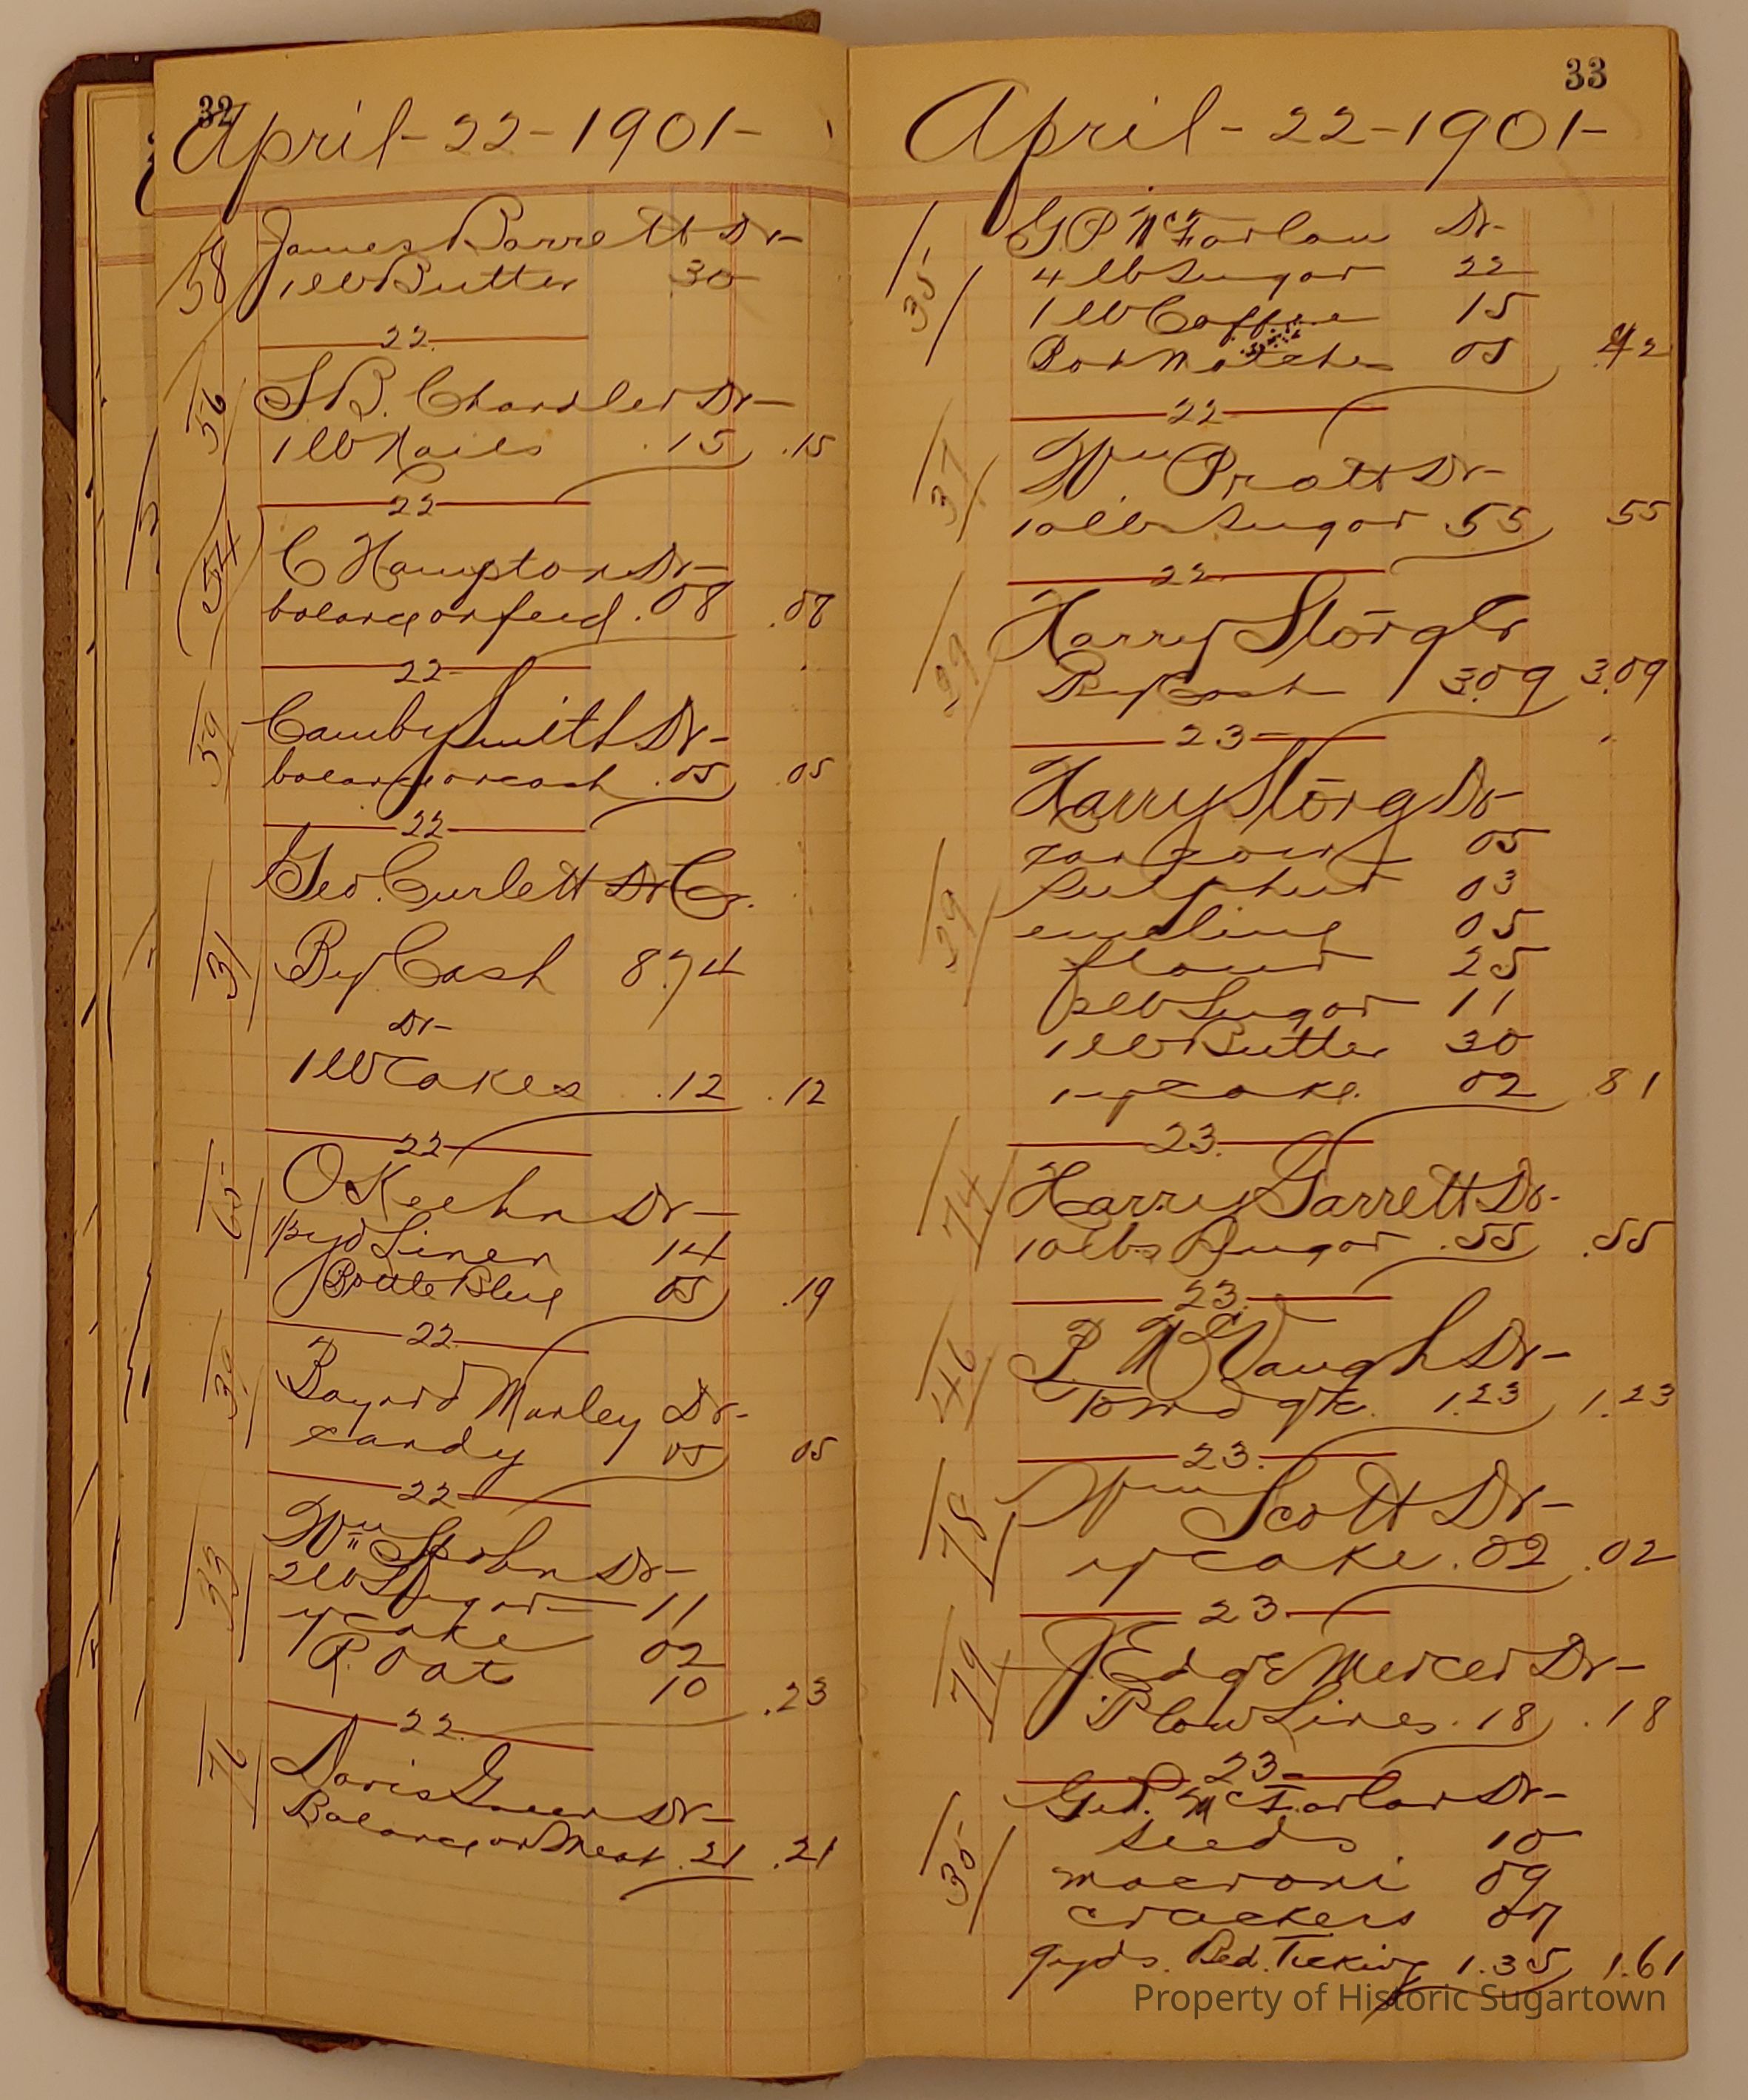 32
April-22-1901-
58
James Barrett Dr-
1 lb Butter 30
22
56
S B. Chandler Dr-
1 lb Nails .15 .15
22
54
C Hampton Dr-
balance on feed .08 .08
22
59
Camby Smith Dr-
balance on cash .05 .05
22
Geo. Curlett Dr Cr.
31
By Cash 8.74
Dr-
1 lb Cakes .12 .12
22
65
O Keehn Dr-
yd Linen 14
Bottle Blue 05 .19
22
39
Bayard Marley Dr-
candy 05 05
22
33
Wm John Dr-
2 lb Sugar 11
y cake 02
R. Oats 10 .23
22
76
Davis Green Dr-
Balance on Meat .21 .21
33
April-22-1901-
35
G.P McFarlan Dr-
4 lb Sugar 22
1 lb Coffee 15
Box Matches 05 .42
22
37
Wm Pratt Dr-
10 lbs Sugar 55 55
22
29
Harry Storg Cr
By Cash 3.09 3.09
23
Harry Storg Dr-
29
05
sulphur 03
05
flour 25
2 lb Sugar 11
1 lb Butter 30
1-y cake. 02 .81
23
74
Harry Garrett Dr-
10 lbs Sugar .55 .55
23
46
P. McVaugh Dr-
1.23 1.23
23
78
Wm Scott Dr-
y cake .02 .02
23
79
J Edge Mercer Dr-
Plow Lines .18 .18
23
35
Geo. McFarlan Dr-
seeds 10
macroni 09
crackers 07
9 yds. Bed. Ticking 1.35 1.61
Property of Historic Sugartown